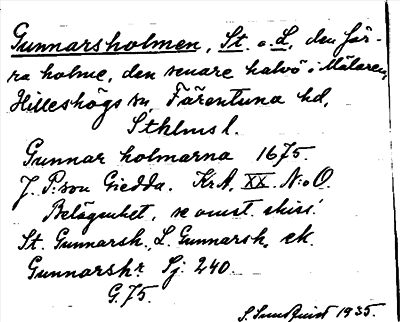 Gunnarsholmen, St. o. L., den för-
ra holme, den senare halvö i Mälaren,
Hilleshögs sn, Färentuna hd,
Sthlms l.
Gunnar holmarna 1675.
J. P:son Giedda. KrA, XX. N:o O.
Belägenhet, se omst. skiss.
St. Gunnarsh., L. Gunnarsh. ek.
Gunnarshr Sj: 240.
G. 75.
1935.